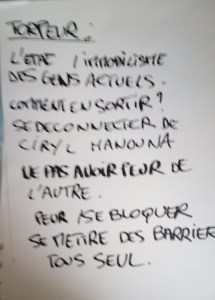 TORPEUR :
L'ETAT L'IMMOBILISME
DES GENS ACTUELS.
COMMENT EN SORTIR ?
SE DECONNECTER DE
CIRYL HANOUNA
NE PAS AVOIR PEUR DE
L'AUTRE.
PEUR / SE BLOQUER
SE METTRE DES BARRIER
TOUS SEUL.